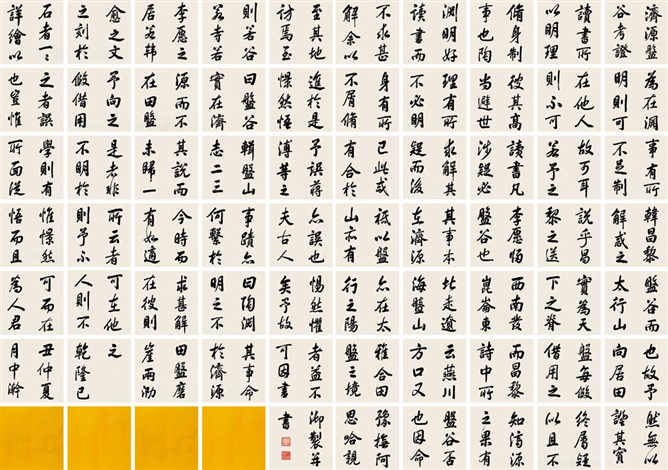 濟源盤
谷考證
讀書所
以明理
脩身制
事也陶
淵明好
讀書而
不求甚
解余以
為在淵
明則可
在他人
則不可
彼其高
當避世
理有所
不必明
身有所
不屑脩
事有所
不足制
故可耳
若予之
讀書凡
涉疑必
求解其
疑而後
已此或
有合於
韓昌黎
解惑之
說乎昌
黎之送
李愿悟
盤谷也
其事本
在濟源
祗以盤
山亦有
盤谷並
太行山
實為天
下之脊
西南發
崑崙東
北走遼
海盤山
亦在太
行之陽
而予故
向居田
盤每假
借用之
而昌黎
詩中所
云燕川
方口又
雅合田
盤之境
然無以
證其實
終屬疑
似且不
知濟源
之果有
盤谷否
也因命
豫撫阿
思哈親
至其地
訪焉至
則若谷
若寺若
李愿之
居若韓
愈之文
之刻於
石者一一
詳繪以
進於是
憬然悟
曰盤谷
實在濟
源而不
在田盤
予向之
假借用
之者誤
也豈惟
予誤蔣
溥等之
輯盤山
志二三
其說而
未歸一
是者非
不明於
學則有
所面從
亦誤也
夫古人
事蹟亦
何繫於
今時而
有如適
所云者
則予不
惟憬然
悟而且
惕然懼
矣予故
曰陶淵
明之不
求甚解
在彼則
可在他
人則不
可而在
為人君
者益不
可因書
其事命
於濟源
田盤磨
崖兩泐
之
乾隆己
丑仲夏
月中澣
御製并
書